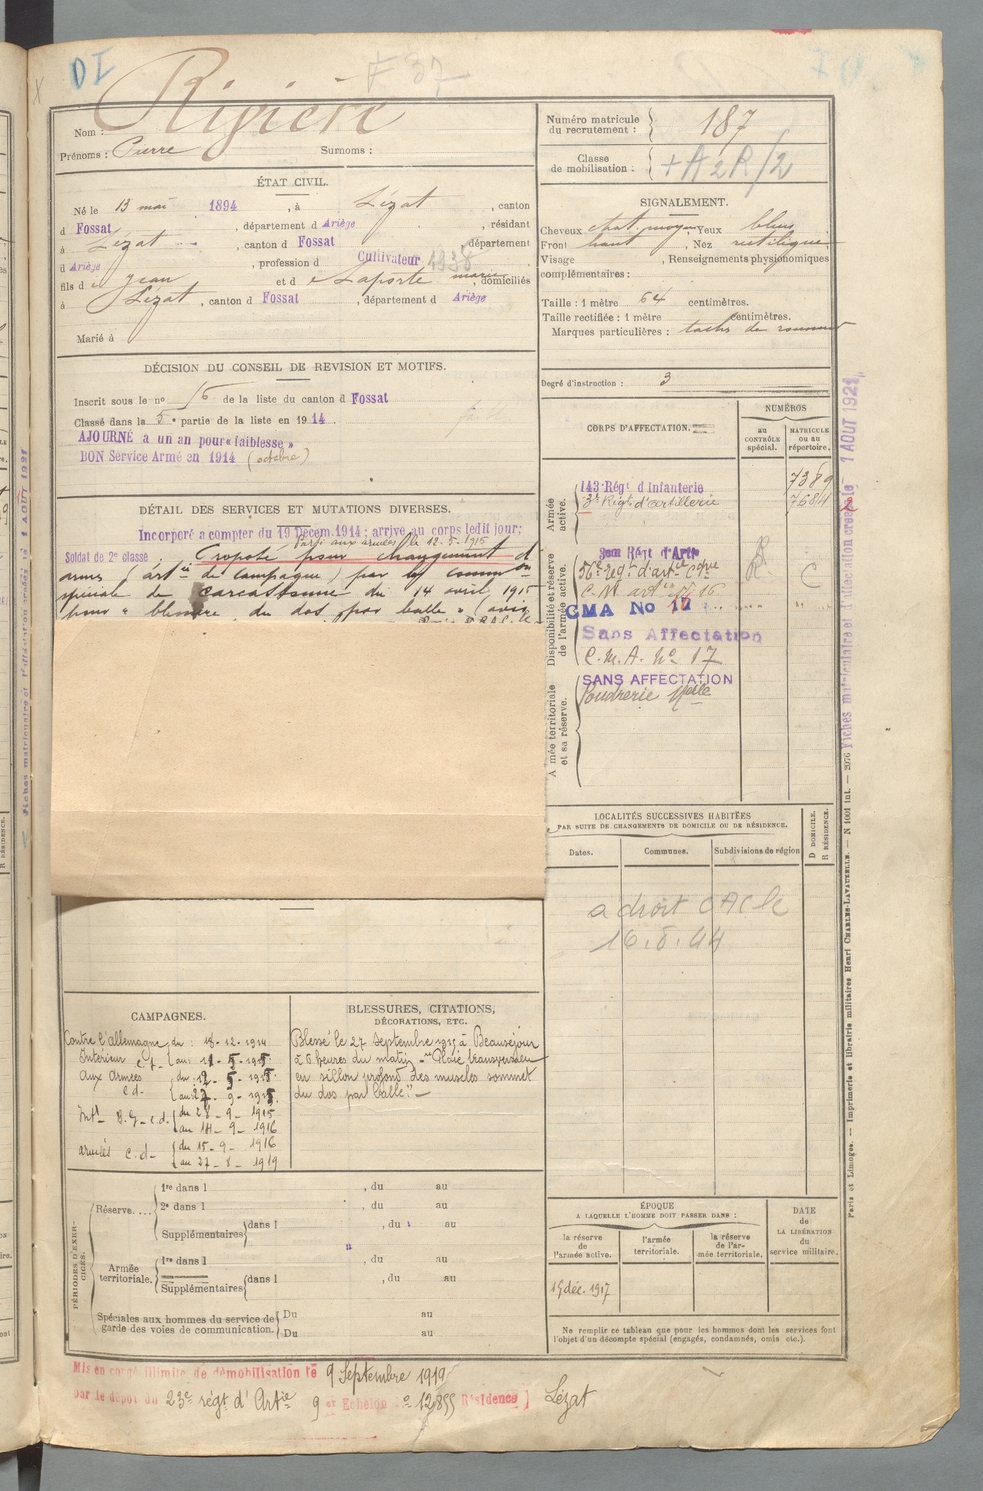 DI
F 37
Nom : Rivière
Prénoms : Pierre Surnoms :
Numéro matricule du recrutement : 187
Classe de mobilisation : + A 2 R/2
ÉTAT CIVIL.
Né le 13 mai 1894, à Lézat, canton
d Fossat, département d Ariège, résidant
à Lézat, canton d Fossat, département
d Ariège, profession d Cultivateur 1938
fils d e Jean et d e Laporte marie, domiciliés
à Lézat, canton d Fossat, département d Ariège
Marié à
SIGNALEMENT.
Cheveux chat. moyen Yeux bleus
Front haut, Nez rectiligne
Visage , Renseignements physionomiques
complémentaires :
Taille : 1 mètre 64 centimètres.
Taille rectifiée : 1 mètre centimètres.
Marques particulières : taches de rousseur
Degré d'instruction : 3
DÉCISION DU CONSEIL DE REVISION ET MOTIFS.
Inscrit sous le no 16 de la liste du canton d Fossat
Classé dans la 5e partie de la liste en 1914.
AJOURNÉ a un an pour « faiblesse »
BON Service Armé en 1914 (octobre)
DÉTAIL DES SERVICES ET MUTATIONS DIVERSES.
Incorporé a compter du 19 Décem. 1914 ; arrivé au corps ledit jour;
Parti aux armées le 12-5-1915
Soldat de 2e classe. Proposé pour changement d
armes (artie de campagne) par la commion
spéciale de Carcassonne du 14 avril 1915
pour « blessure du dos par balle » (avis
CORPS D'AFFECTATION.
NUMÉROS
au CONTRÔLE spécial.
MATRICULE ou au répertoire.
Armée active.
143 Régt d'Infanterie 7389
3e Régt d'artillerie 7684
Disponibilité et réserve de l'armée active.
3em Régt d'Artie
56e Régt d'artie Cgne C
C. M. artie 16
CMA No 17
Sans Affectation
C. M. A. No 17
SANS AFFECTATION
Armée territoriale et sa réserve.
Poudrerie Nle
LOCALITÉS SUCCESSIVES HABITÉES
PAR SUITE DE CHANGEMENTS DE DOMICILE OU DE RÉSIDENCE.
Dates. Communes. Subdivisions de région
D DOMICILE.
R RÉSIDENCE.
a droit CAC le
16.5.44
CAMPAGNES.
Contre l'allemagne du : 18-12-1914
Intérieur c.s. au : 11-5-1915
Aux Armées du : 12-5-1915
c.d. au : 27-9-1915
Int. B.G. c.d. du 28-9-1915
au 14-9-1916
armées c.d. du 15-9-1916
au 27-8-1919
BLESSURES, CITATIONS,
DÉCORATIONS, ETC.
Blessé le 27 septembre 1915 à Beauséjour
à 6 heures du matin - "Plaie transversale
en sillon profond des muscles sommet
du dos par balle" -
PÉRIODES D'EXERCICES.
Réserve....
1re dans l , du au
2e dans l , du au
Supplémentaires dans l , du au
Armée territoriale.
1re dans l , du au
Supplémentaires dans l , du au
Spéciales aux hommes du service de garde des voies de communication.
Du au
Du au
ÉPOQUE
A LAQUELLE L'HOMME DOIT PASSER DANS :
la réserve de l'armée active.
l'armée territoriale.
la réserve de l'armée territoriale.
DATE DE LA LIBÉRATION du service militaire.
15 déc. 1917
Ne remplir ce tableau que pour les hommes dont les services font
l'objet d'un décompte spécial (engagés, condamnés, omis etc.).
Mis en congé illimité de démobilisation le 9 Septembre 1919
par le dépôt du 23e régt d'Artie 9 er Echelon no 12855 Résidence ] Lézat
Fiches matriculaire et d'affectation créées le 1 AOUT 1921
Paris et Limoges. — Imprimerie et librairie militaires Henri CHARLES-LAVAUZELLE. — N 1001 int. — 2076